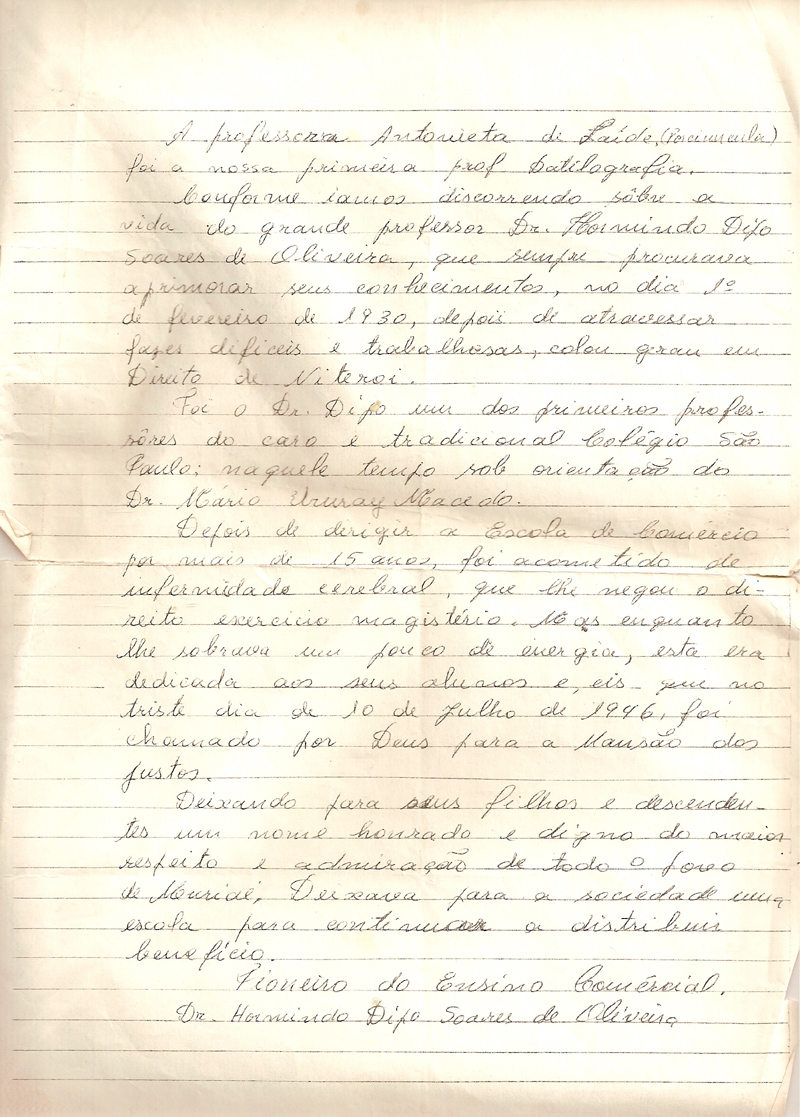 A professora Antonieta de Laíde, (Porciuncula)
foi a nossa primeira prof Datilografia.
Conforme iamos discorrendo sôbre a
vida do grande professor Dr. Hormindo Dipo
Soares de Oliveira, que sempre procurava
aprimorar seus conhecimentos, no dia 1º
de fevereiro de 1930, depois de atravessar
fazes dificeis e trabalhosas, colou grau em
Direito de Niteroi.
Foi o Dr. Dipo um dos primeiros profes-
sôres do caro e tradicional Colégio São
Paulo; naquele tempo sob orientação do
Dr. Mário Ururay Macedo.
Depois de dirigir a Escola de Comércio
por mais de 15 anos, foi acometido de
infermidade cerebral, que lhe negou o di-
reito exercicio magistério. Mas enquanto
lhe sobrava um pouco de energia, esta era
dedicada aos seus alunos e, eis que no
triste dia de 10 de Julho de 1946, foi
chamado por Deus para a Mansão dos
justos.
Deixando para seus filhos e descenden-
tes um nome honrado e digno do maior
respeito e admiração de todo o povo
de Muriaé, Deixava para a sociedade uma
escola para continuar a distribuir
benefício.
Pioneiro do Ensino Comércial.
Dr. Hormindo Dipo Soares de Oliveira